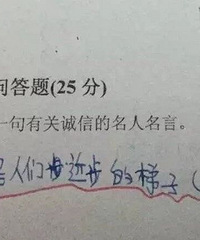 问答题(25 分)
一句有关诚信的名人名言。
是人们进步的梯子(